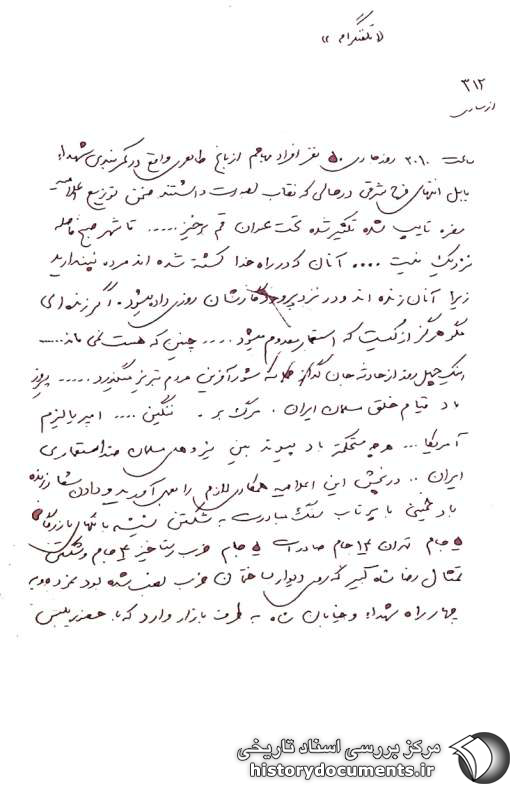 «تلفنگرام»
۳۱۲
از ساری
ساعت ۲۰۱۰ روز جاری ۵۰ نفر افراد مهاجم از باغ طالعی واقع در کمربندی شهدا
بابل انتهای فرح شرقی در حالی که نقاب بصورت داشتند ضمن توزیع اعلامیه
تایپ شده تکثیر شده تحت عنوان قم برخیز ..... تا شهر صبح فاصله
نزدیک نیست .... آنان که در راه خدا کشته شده اند مرده نپندارید
زیرا آنان زنده اند و در نزد پروردگارشان روزی داده میشود. اگر زنده ای
مگو هرگز از کیست که استعمار معدوم میشود .... چنین که هست نمی ماند.....
اینک چهل روز از حادثه جان گداز شورآفرین مردم تبریز میگذرد ..... پیروز
باد قیام خلق مسلمان ایران . مرگ بر . ننگین .... امپریالیزم
آمریکا... هر چه مستحکمتر باد پیوند بین نیروهای مسلمان ضد استعماری
ایران .. در پخش این اعلامیه همکاری لازم را بعمل آورید و دادن شعار زنده
باد خمینی با پرتاب سنگ مبادرت به شکستن شیشه بانکهای بازرگانی
۵ جام تهران ۱۴ جام صادرات ۵ جام حزب رستاخیز ۴ جام و شکستن
تمثال رضا شاه کبیر که روی دیوار ساختمان حزب نصب شده بود نمودند و به
چهارراه شهدا و خیابان شاه به طرف بازار وارد که با حضور پلیس
مرکز بررسی اسناد تاریخی
historydocuments.ir